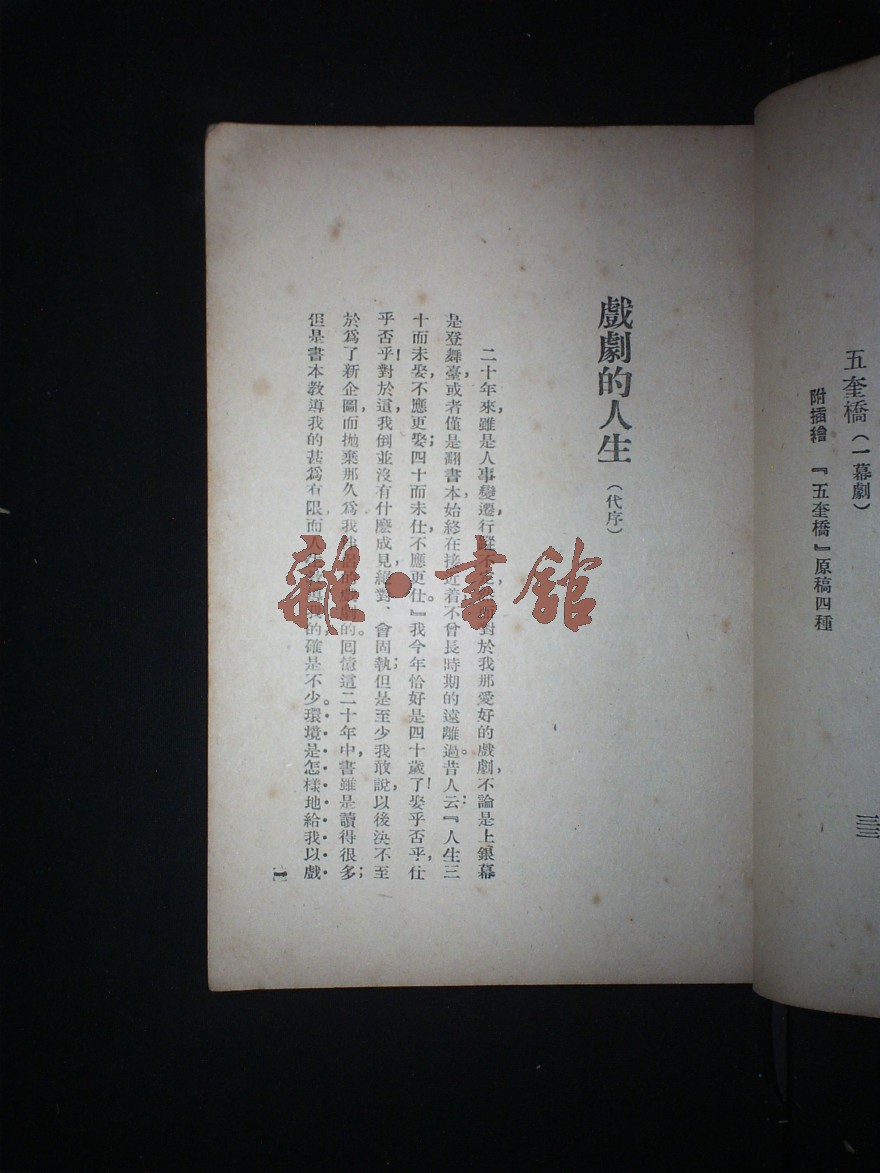 五奎橋（一幕劇）
附插繪 『五奎橋』原稿四種
三三
戲劇的人生（代序）
二十年來，雖是人事變遷，行蹤不定，對於我那愛好的戲劇，不論是上銀幕
是登舞臺，或者僅是翻書本，始終在接近着不曾長時期的遠離過。昔人云：『人生三
十而未娶，不應更娶；四十而未仕，不應更仕。』我今年恰好是四十歲了！娶乎否乎，仕
乎否乎！對於這，我倒並沒有什麼成見，絕對、會固執；但是至少我敢說，以後決不至
於爲了新企圖，而拋棄那久爲我 的戲劇的。回憶這二十年中，書雖是讀得很多；
但是書本教導我的甚爲有限，而人生教導我的，確是不少。環境是怎樣地給我以戲
一
雜·書館